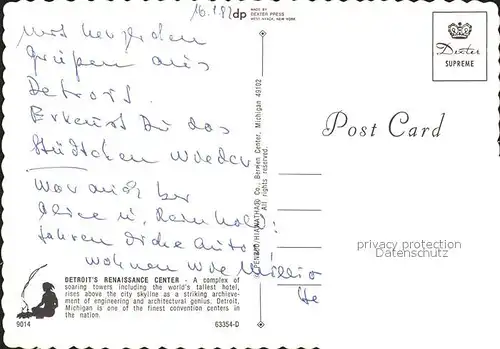 16.1.82
dp
MADE BY
DEXTER PRESS
WEST NYACK, NEW YORK
Dexter
SUPREME
mit herzlichen
Grüßen aus
Detroit.
Erkennst Du das
Städtchen wieder
War auch bei
Alice u. Reinhold:
fahren dicke Autos
wohnen wie Millio
Post Card
privacy protection
Datenschutz
Co., Berrien Center, Michigan 49102
All rights reserved.
DETROIT'S RENAISSANCE CENTER - A complex of
soaring towers including the world's tallest hotel,
rises above the city skyline as a striking achieve-
ment of engineering and architectural genius. Detroit,
Michigan is one of the finest convention centers in
the nation.
9014
63354-D